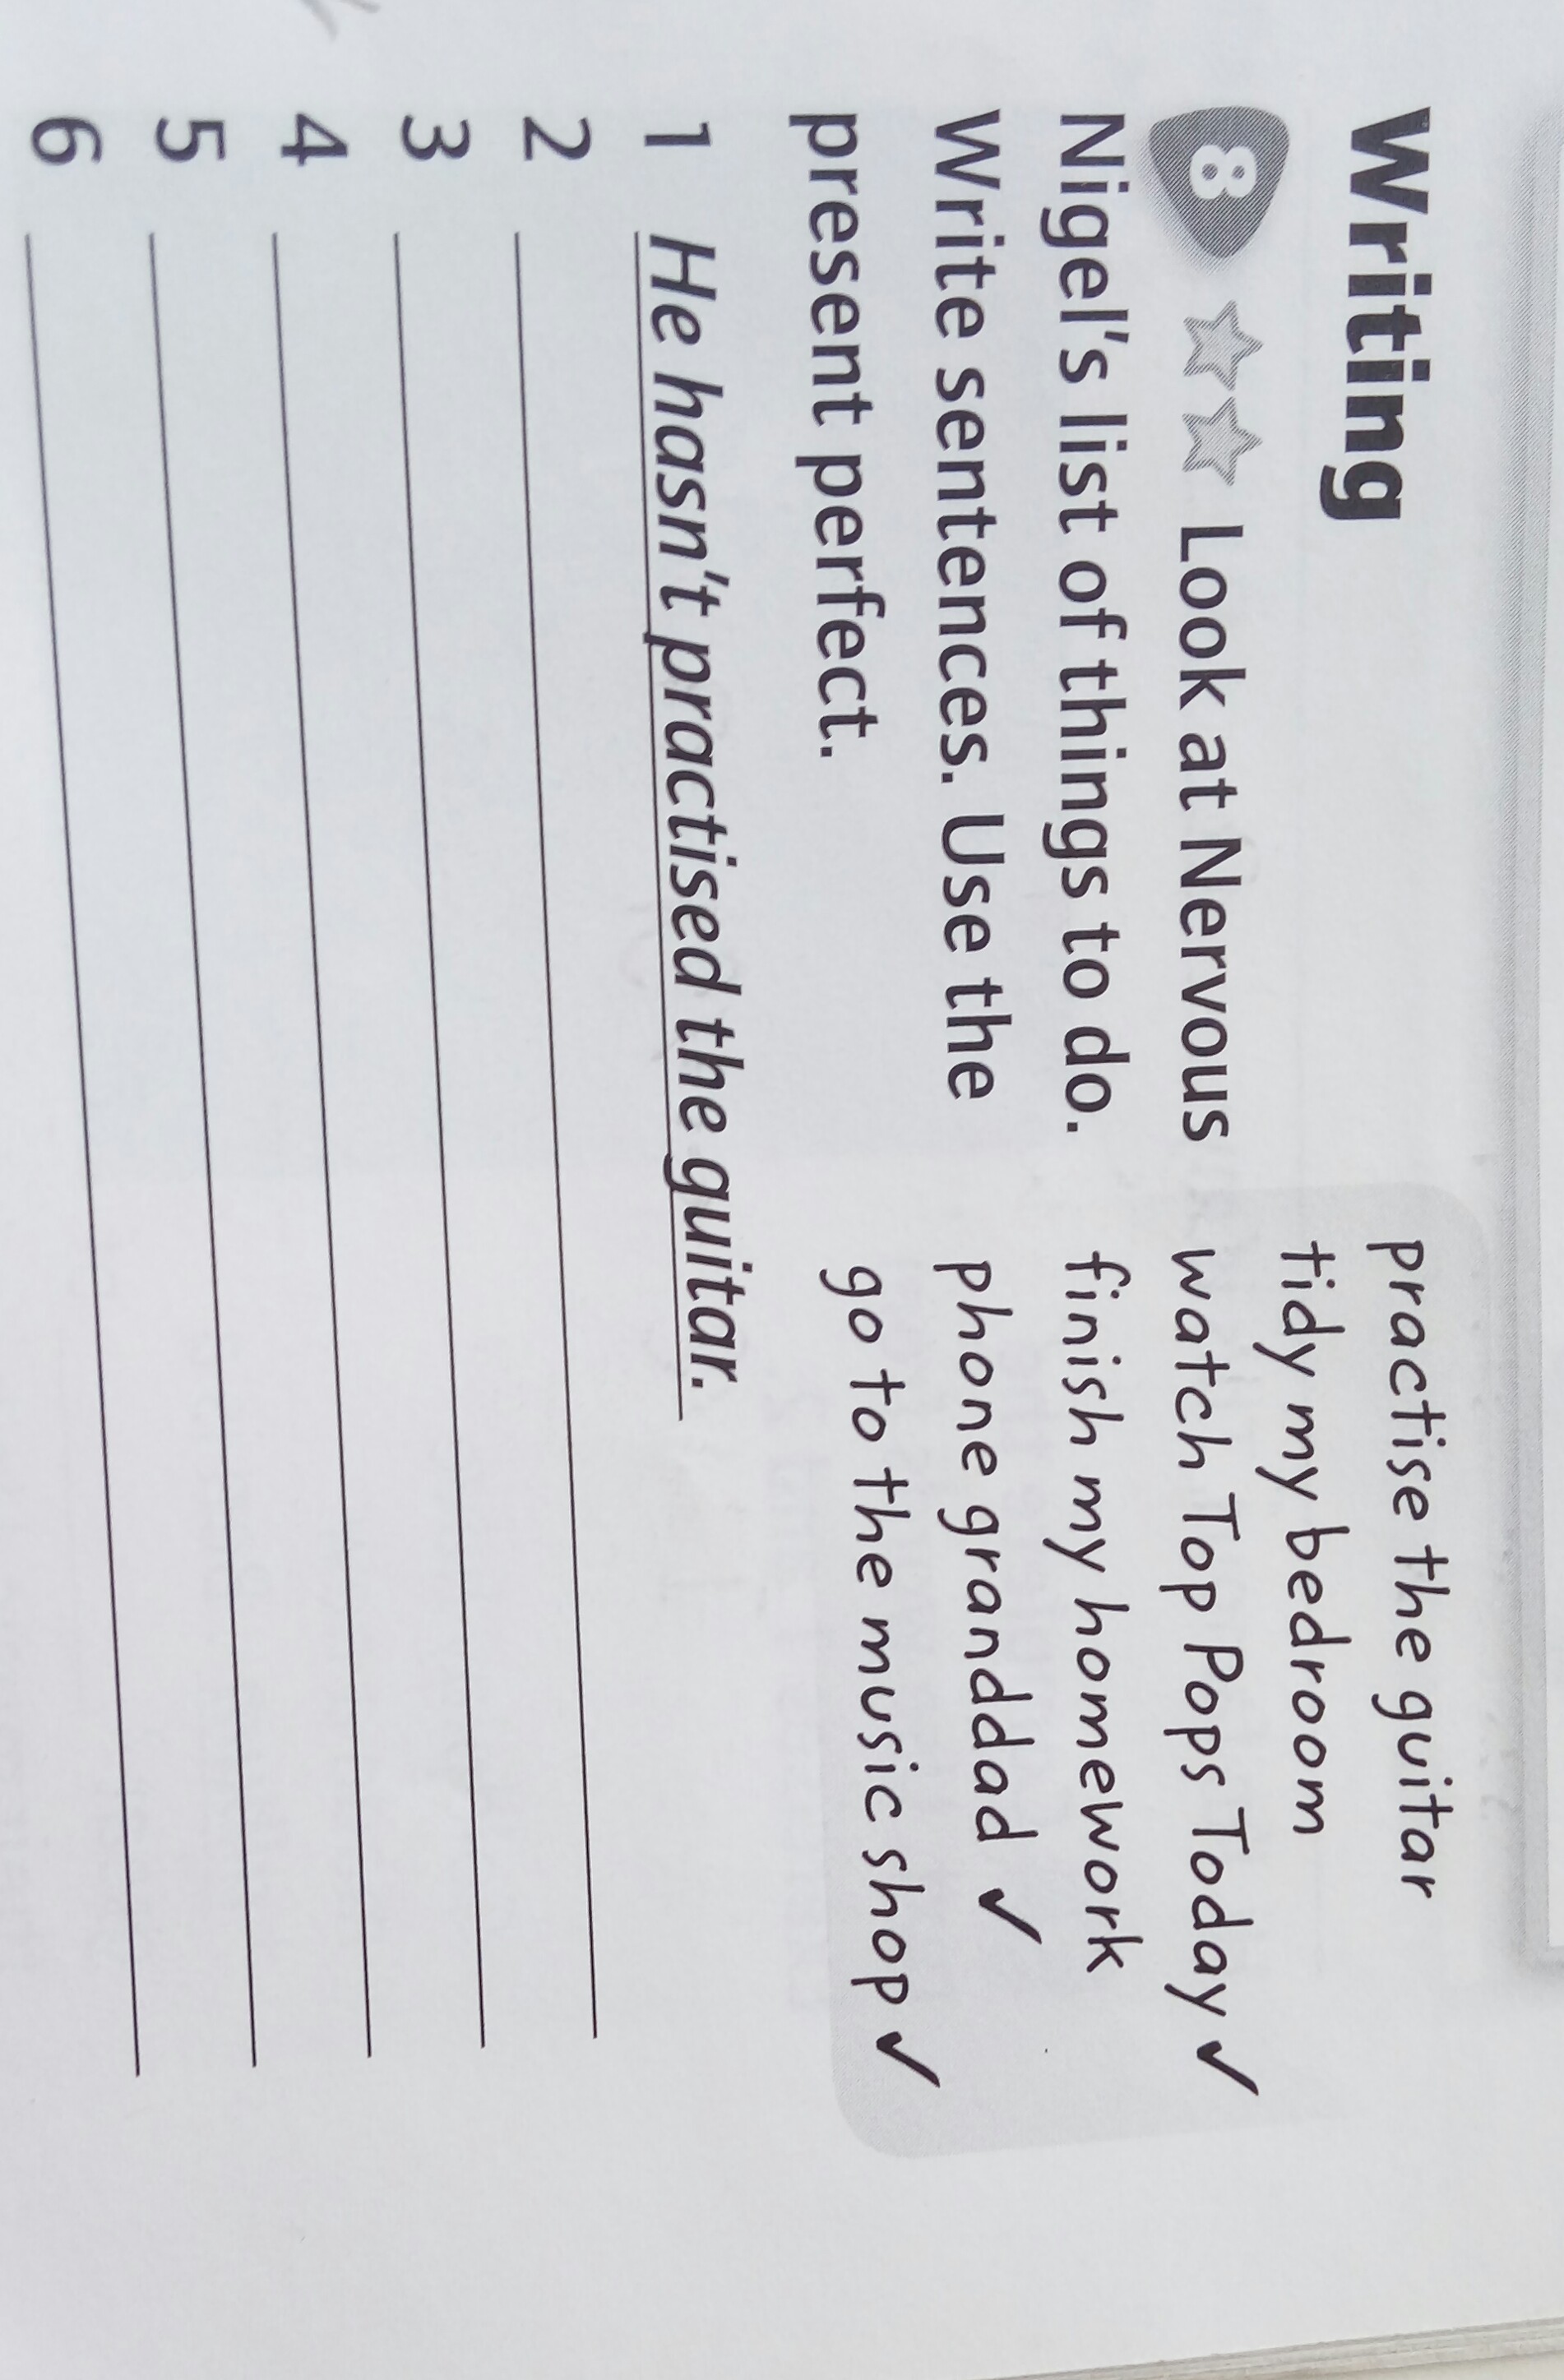 Writing
8 Look at Nervous
Nigel's list of things to do.
Write sentences. Use the
present perfect.
practise the guitar
tidy my bedroom
watch Top Pops Today ✓
finish my homework
phone granddad ✓
go to the music shop ✓
1 He hasn't practised the guitar.
2
3
4
5
6